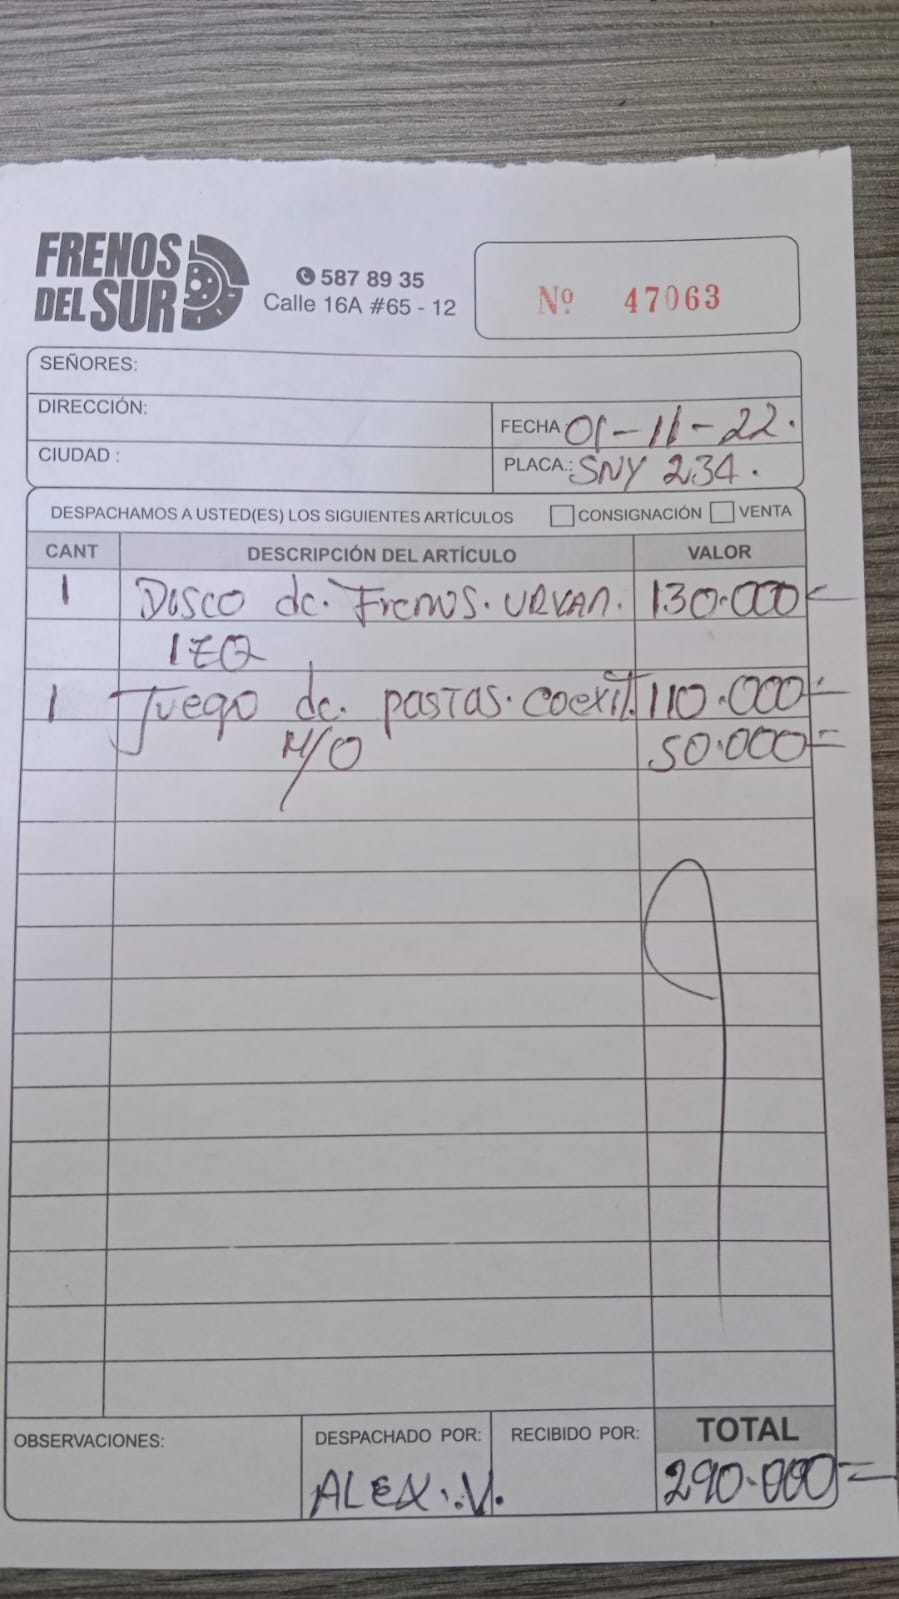 FRENOS
DEL SUR
587 89 35
Calle 16A #65 - 12
Nº 47063
SEÑORES:
DIRECCIÓN:
FECHA 01-11-22.
CIUDAD :
PLACA.: SNY 234.
DESPACHAMOS A USTED(ES) LOS SIGUIENTES ARTÍCULOS CONSIGNACIÓN VENTA
CANT DESCRIPCIÓN DEL ARTÍCULO VALOR
1 Disco de. Frenos. URVAN. 130.000=
IZQ
1 Juego de. pastas. coexit. 110.000=
M/O 50.000=
OBSERVACIONES:
DESPACHADO POR:
RECIBIDO POR:
TOTAL
ALEX.V.
290.000=